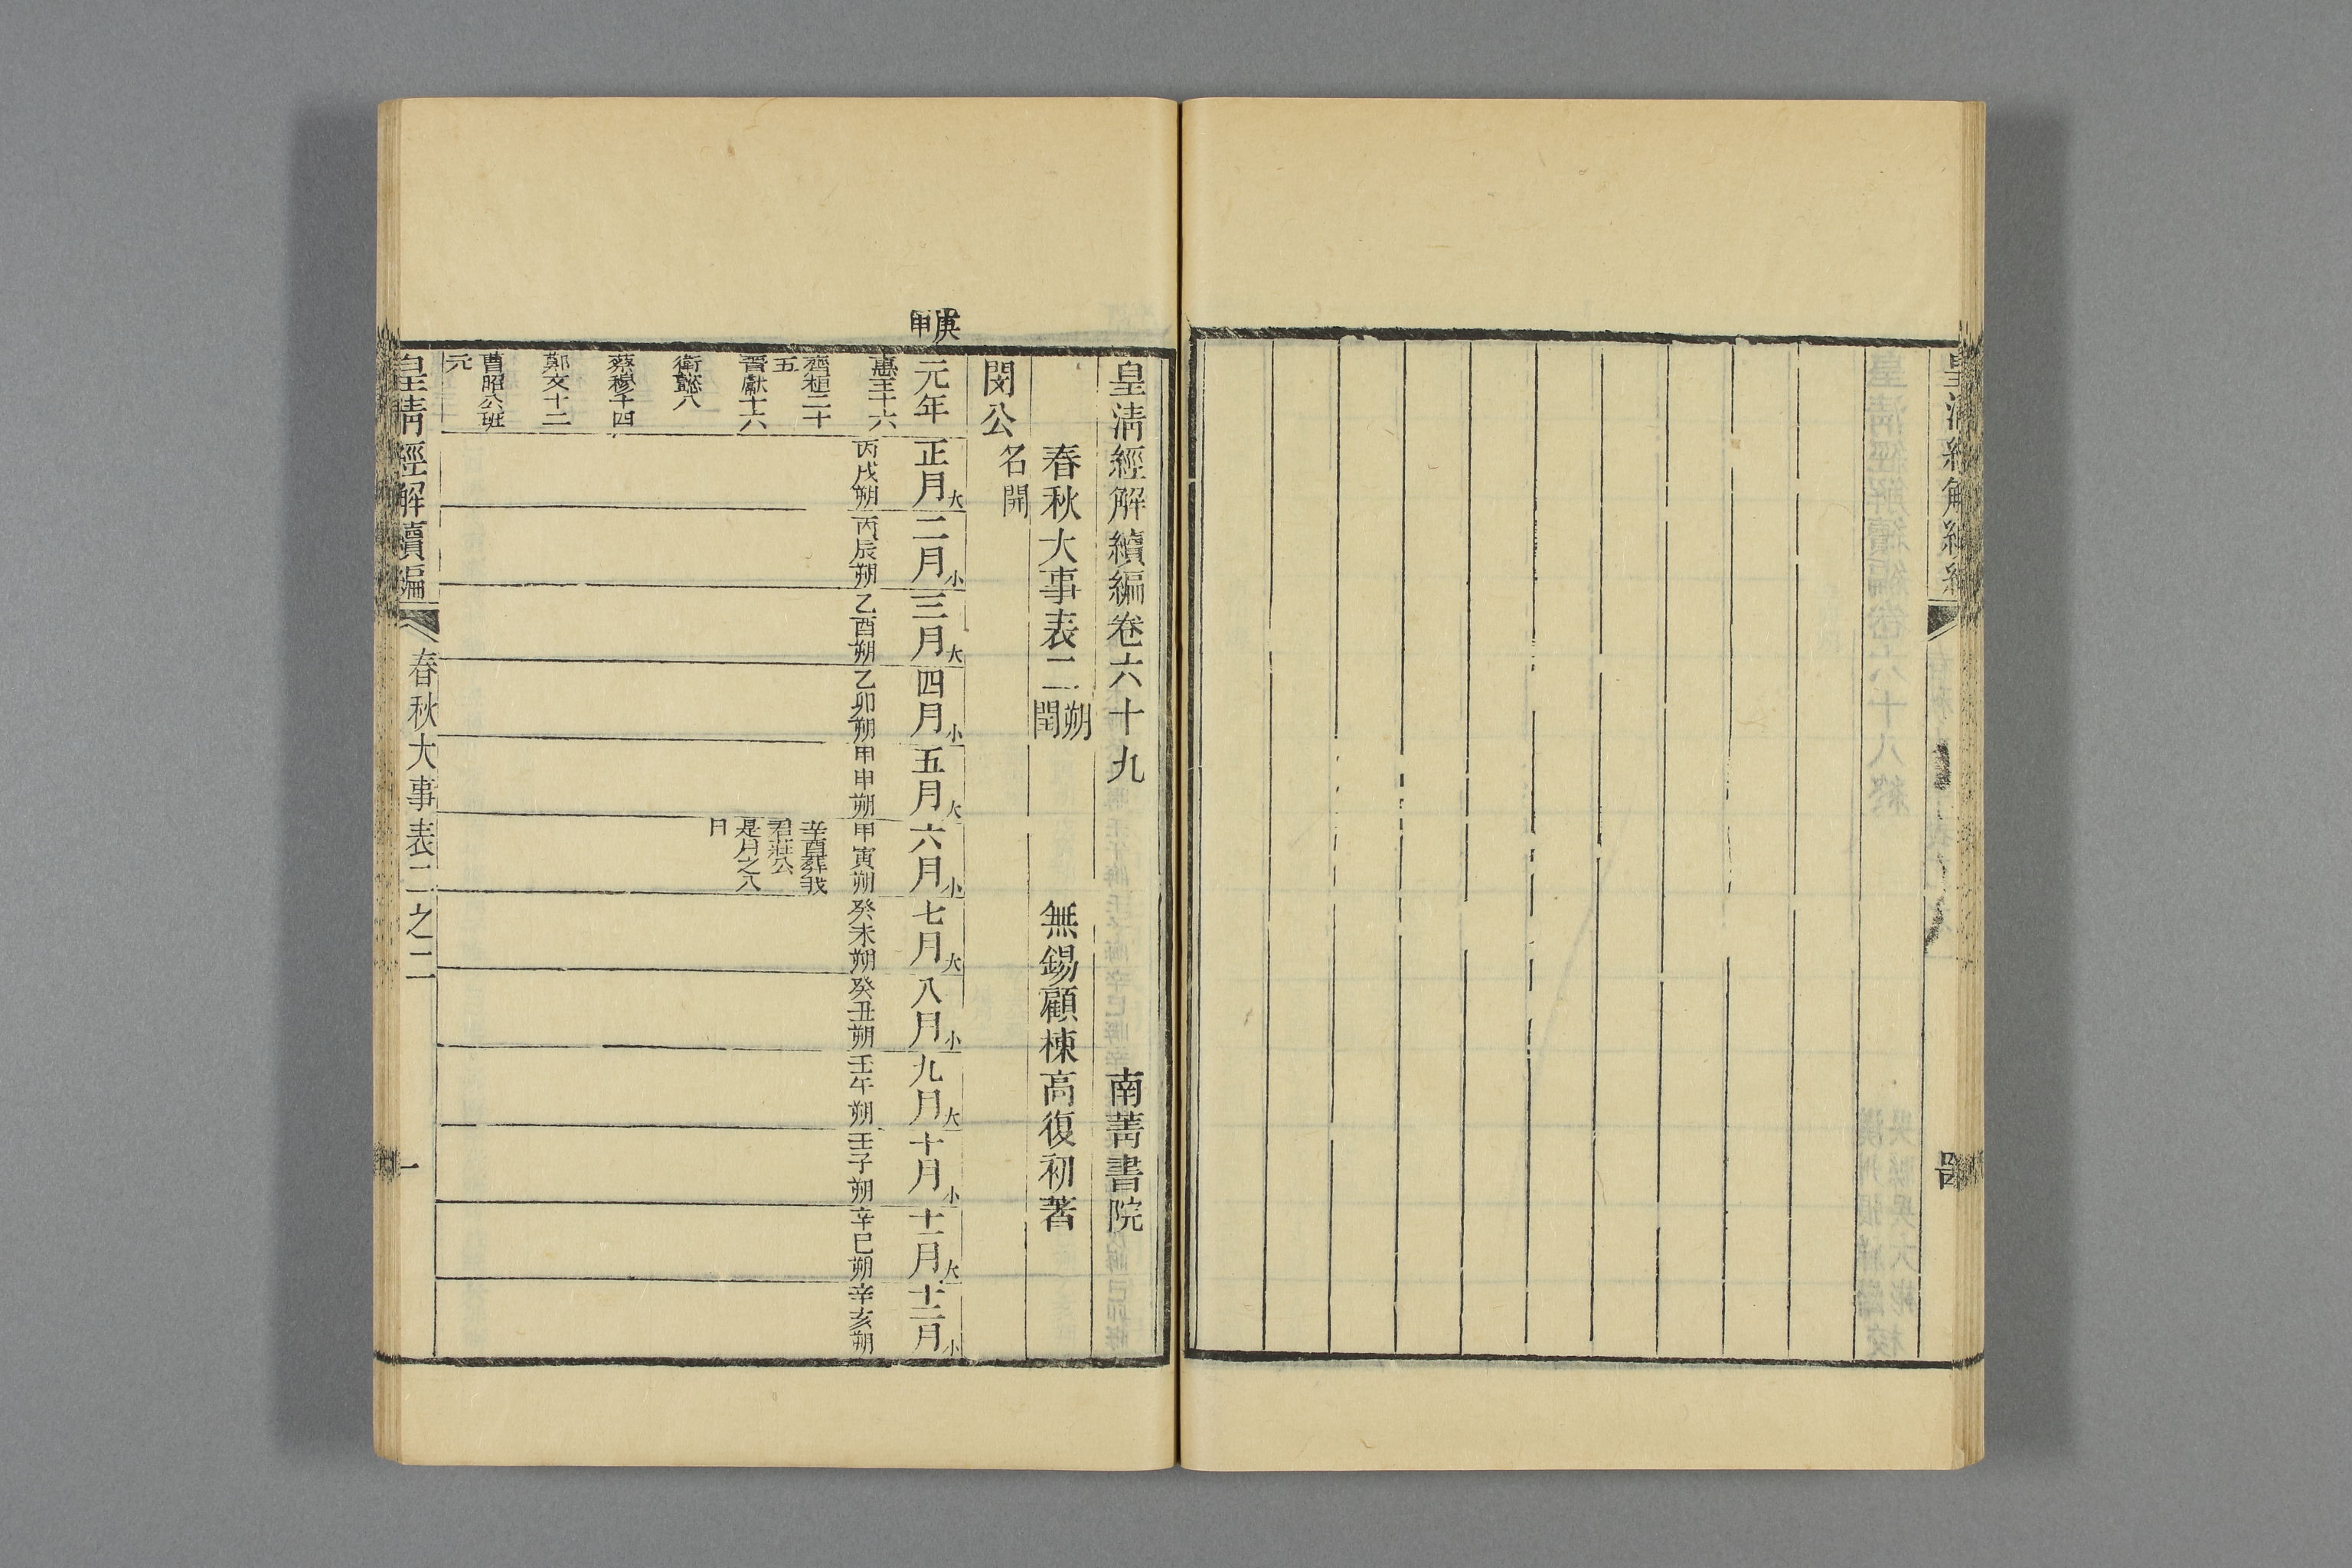 皇清經解續編卷六十九 南菁書院
春秋大事表二 朔閏 無錫顧棟高復初著
閔公 名開
庚申
元年
正月大
二月小
三月大
四月小
五月大
六月小
七月大
八月小
九月大
十月小
十一月大
十二月小
惠王十六
丙戌朔
丙辰朔
乙酉朔
乙卯朔
甲申朔
甲寅朔
癸未朔
癸丑朔
壬午朔
壬子朔
辛巳朔
辛亥朔
齊桓二十
五
晉獻十六
衛懿八
蔡穆十四
鄭文十二
曹昭公班
元
辛酉葬我
君莊公
是月之八
日
皇清經解續編 春秋大事表二之二 一